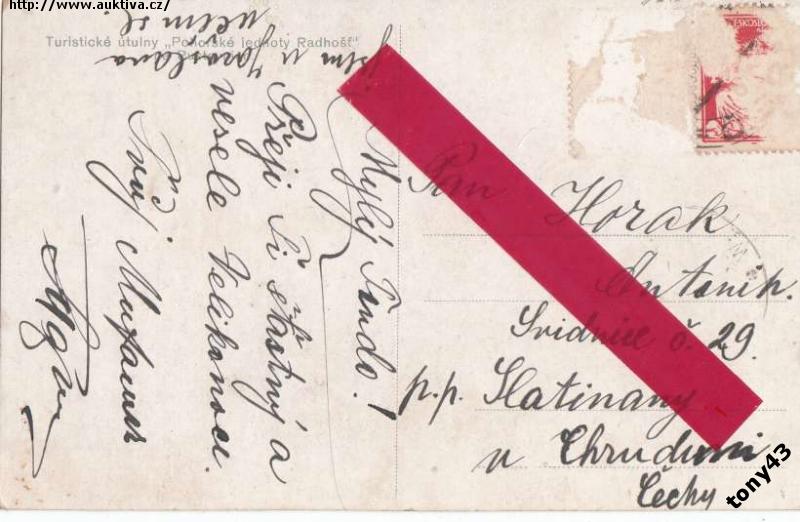 http://www.auktiva.cz/
Turistické útulny „Pohorské jednoty Radhošť"
Jsem u Jaroslava
učím se
Mylý Tondo!
Přeji Ti šťastný a
vesele Velikonoce.
Tvůj
Pan
Horak
Antonin.
Svidnice č. 29.
p.p. Slatinany
u Chrudimi
Čechy
tony43